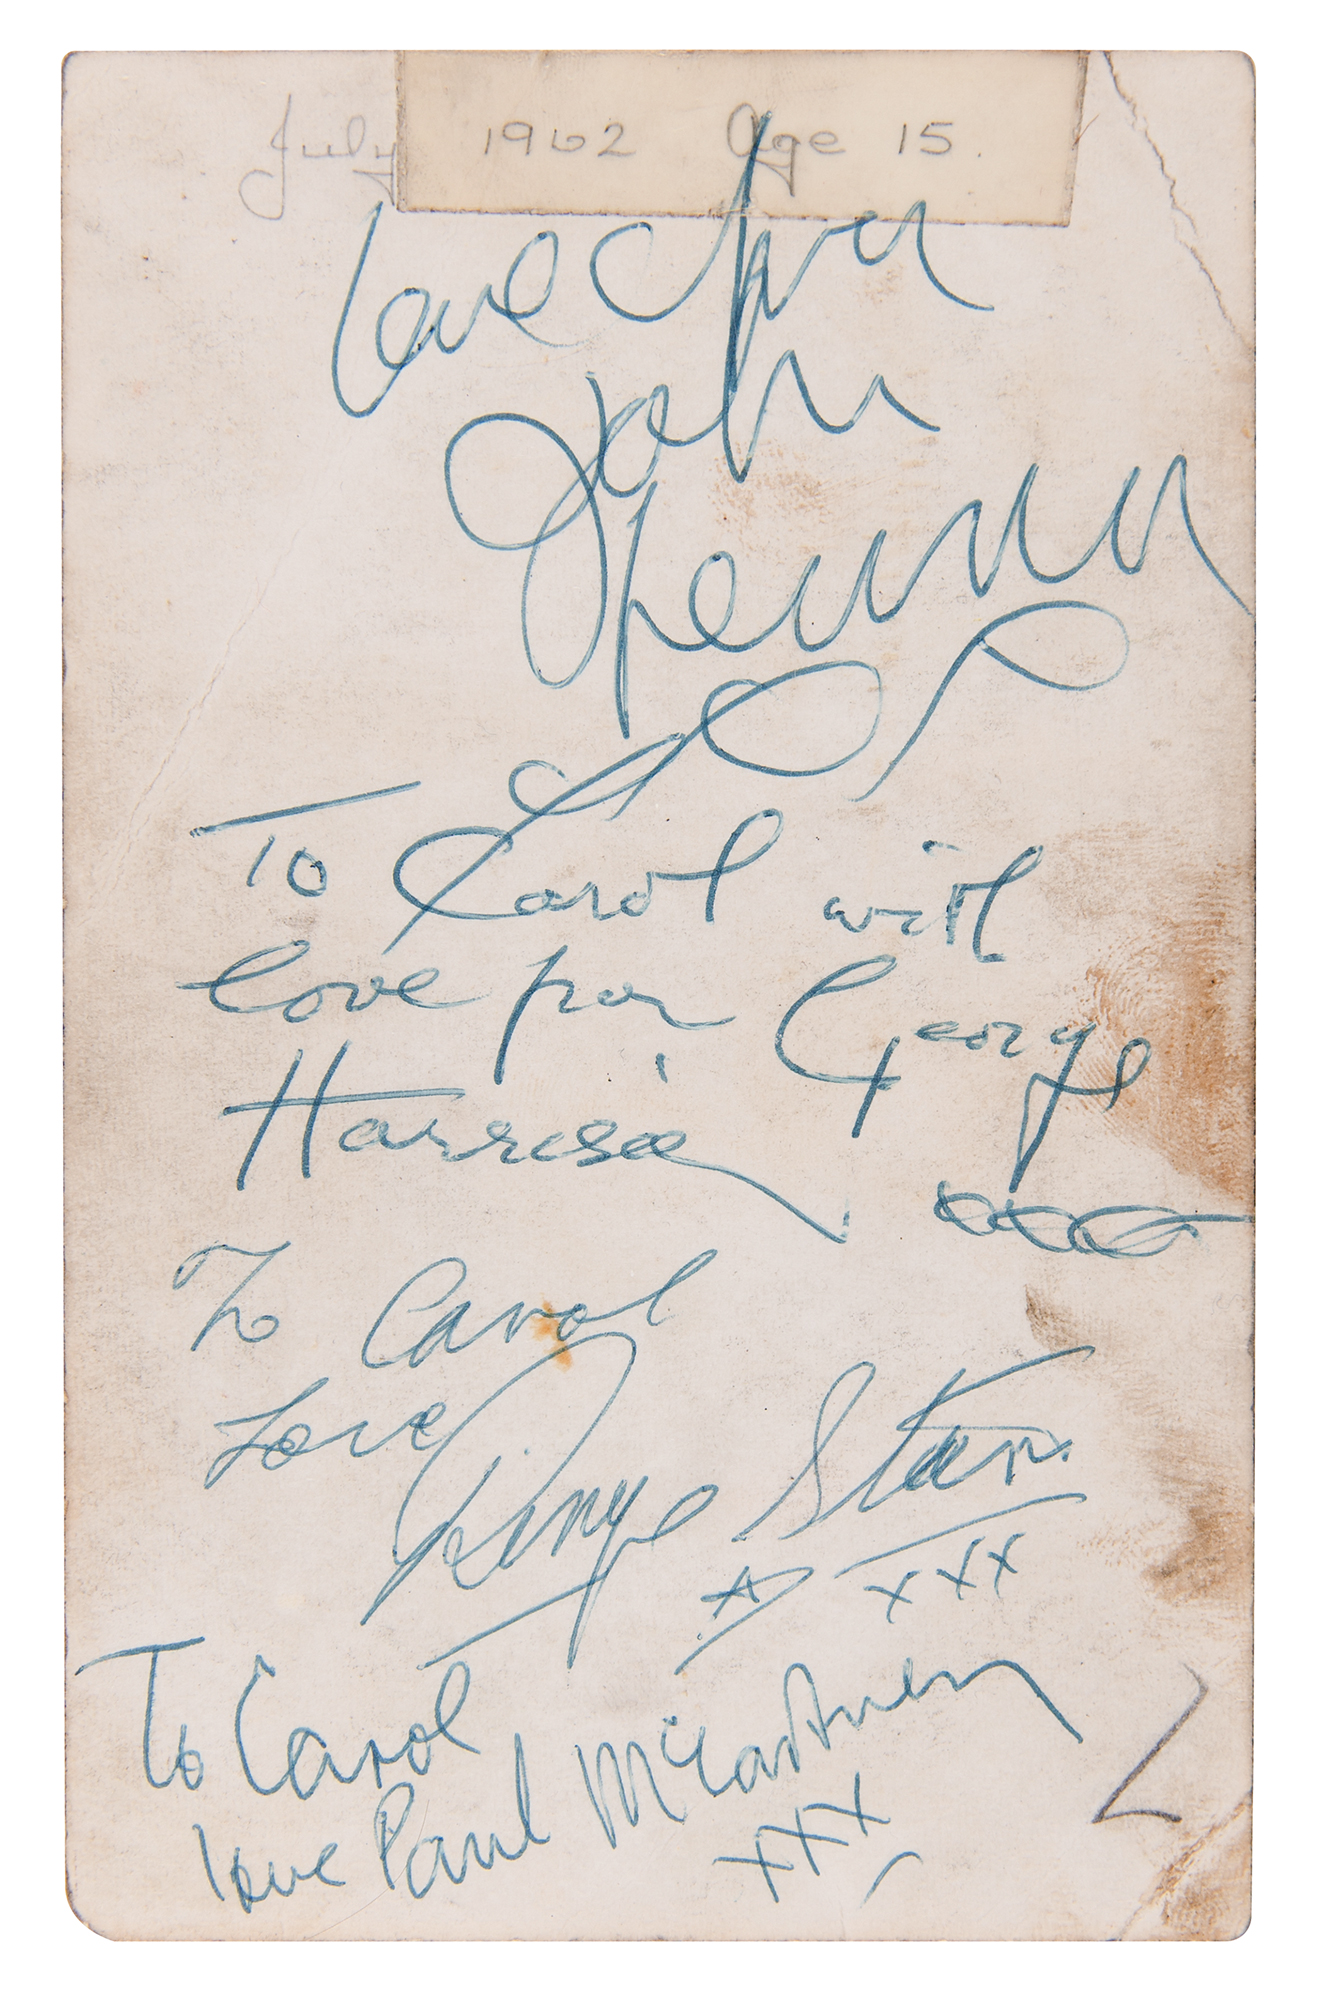 July 1962 Age 15.
love from
John
Lennon
To Carol with
love from George
Harrison
xxx
To Carol
Love Ringo Starr.
xxx
To Carol
love Paul McCartney
xxx